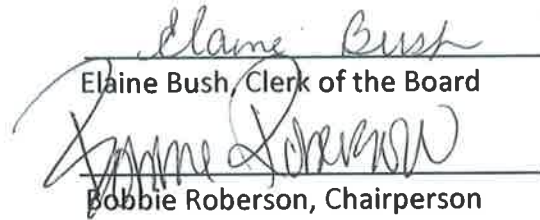 Elaine Bush
Elaine Bush, Clerk of the Board
Roberson
Bobbie Roberson, Chairperson